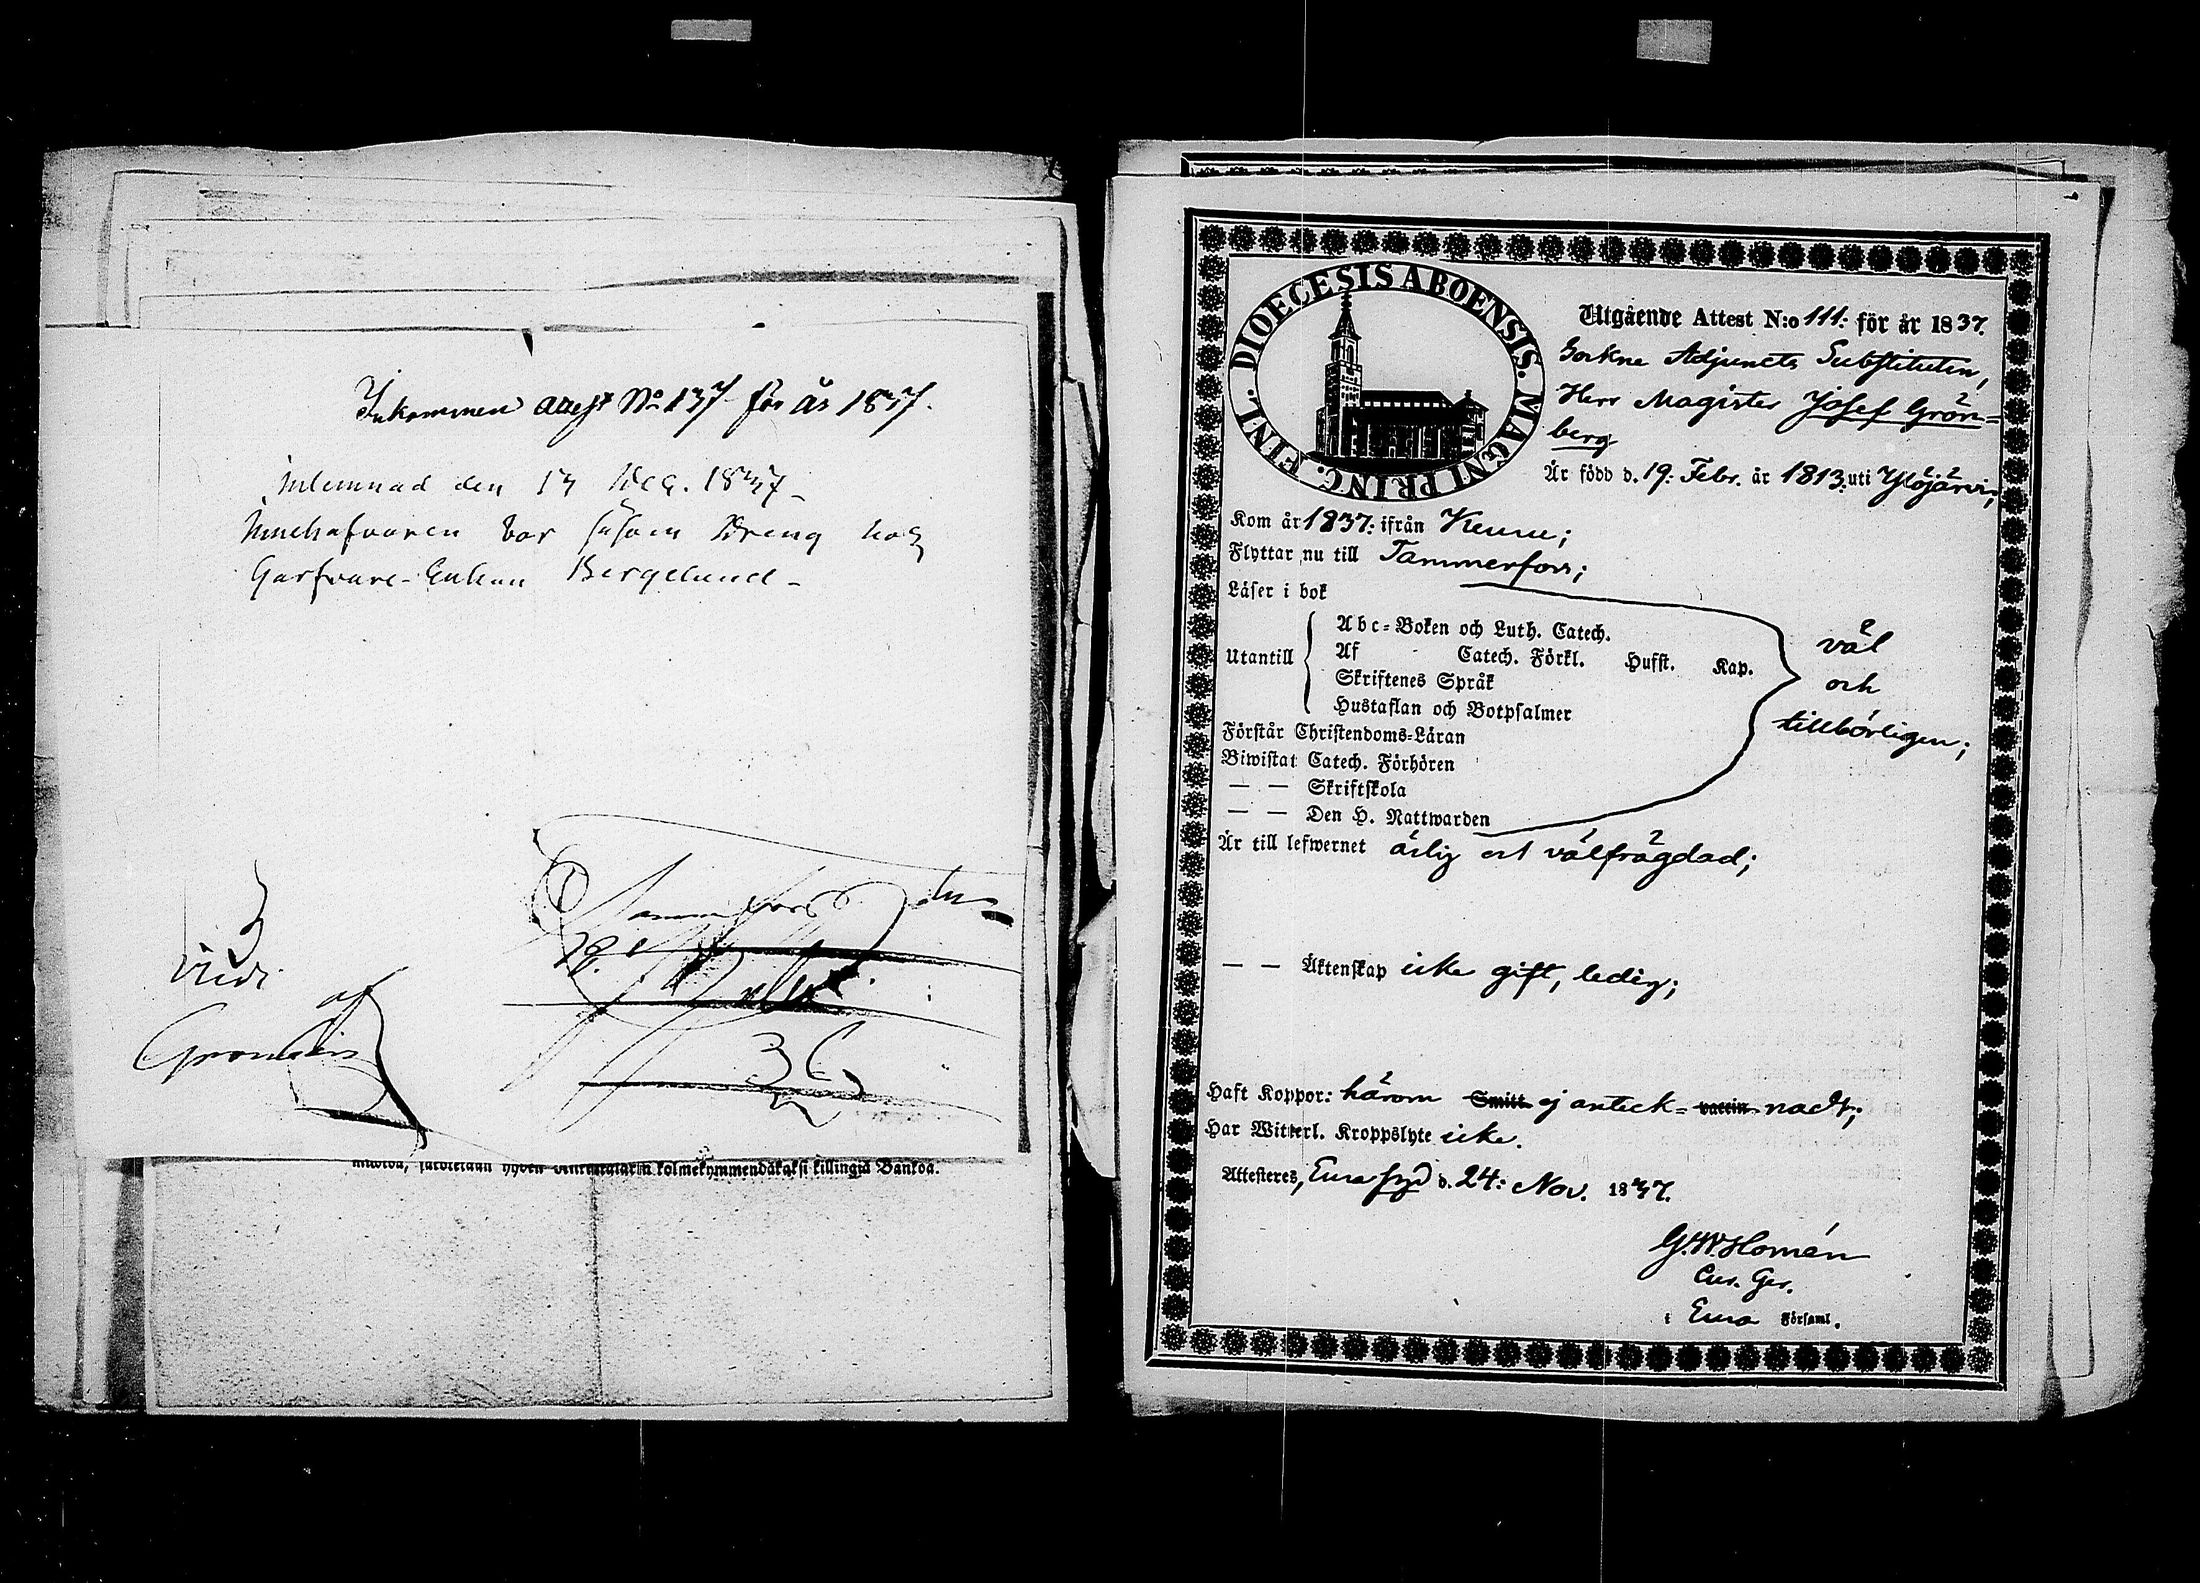 Inkommen attest No 137 för år 1837.
Inlemnad den 13 Dec. 1837
Innehafvaren bor såsom Dreng hos
Garfvare-Enkan Bergelund
vidi
af
36
kolmekymmendäkaksi killingiä Bankoa.
DIOECESIS ABOENSIS. MAGNI PRINC. FINL.
Utgående Attest N:o 111: för år 1837.
Sockne Adjuncts Substituten,
Herr Magister Josef Grön=
berg
Är född d. 19. Febr. år 1813. uti Ylöjärvi;
Kom år 1837. ifrån
Flyttar nu till Tammerfors;
Läser i bok
Utantill
Abc=Boken och Luth. Catech.
Af Catech. Förkl. Hufst. Kap.
Skriftenes Språk
Hustaflan och Botpsalmer
väl
och
tillbörligen;
Förstår Christendoms=Läran
Biwistat Catech. Förhören
— — Skriftskola
— — Den H. Nattwarden
Är till lefwernet ärlig och välfrägdad;
— — Äktenskap icke gift, ledig;
Haft Koppor: härom Smitt. ej anteck= vaccin. nadt;
Har Witterl. Kroppslyte icke.
Attesteres, Eura d. 24: Nov. 1837.
G. W. Homén
Cur. Ger.
i Eura Församl.